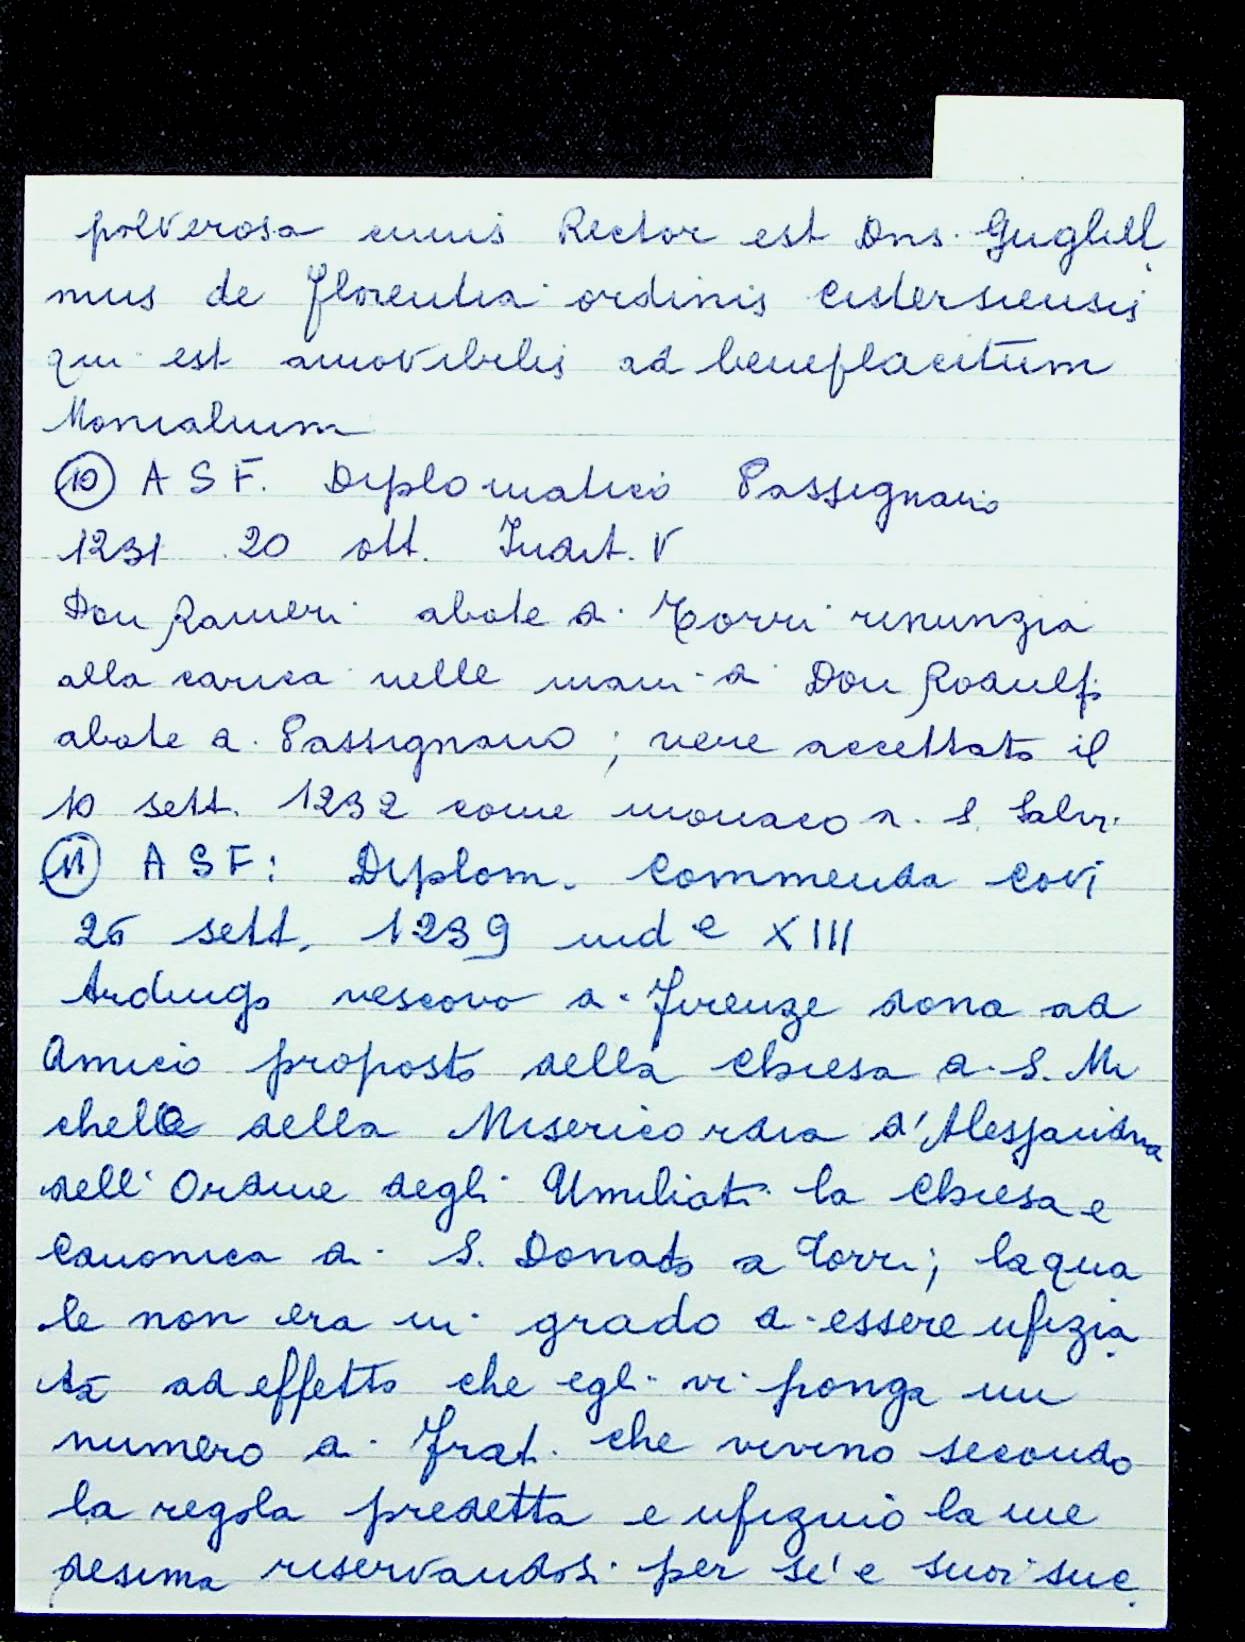 polverosa cuius Rector est Dns. Gughell
mus de florentia ordinis cistersiensis
qui est amovibilis ad beneplacitum
Monialium
10 A S F. Diplomatico Passignano
1231 20 ott. Indit. V
Don Ranieri abate di Torri rinunzia
alla carica nelle mani di Don Rodulfo
abate di Passignano ; viene accettato il
10 sett. 1232 come monaco a S. Salvi
11 A S F : Diplom. Commenda Covi
25 sett. 1239 ind e XIII
Ardingo vescovo di Firenze dona ad
Amico proposto della Chiesa di S. Mi
chele della Misericordia d'Alessandria
dell'Ordine degli Umiliati la Chiesa e
Canonica di S. Donato a Torri ; laqua
le non era in grado di essere ufizia
ta ad effetto che egli vi ponga un
numero di frati che vivino secondo
la regola predetta e ufizino la me
desima riservandosi per se' e suoi suc